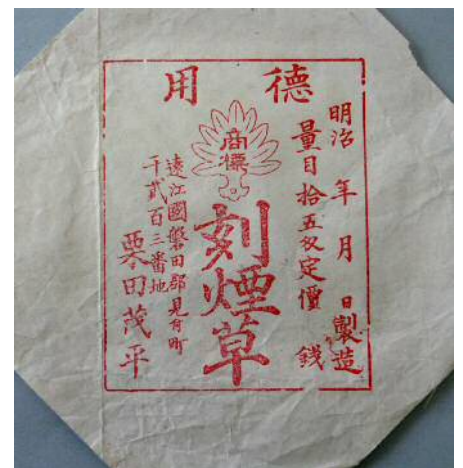 徳用
明治 年 月 日製造
量目拾五匁定價 銭
商標
刻煙草
遠江國磐田郡見付町
千貳百三番地
栗田茂平